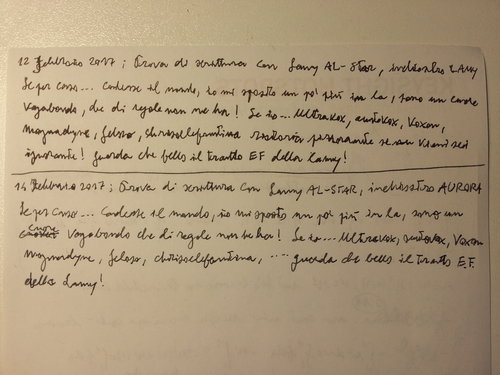 12 Febbraio 2017; Prova di scrittura con Lamy AL-Star, inchiostro LAMY
Se per caso... Cadesse il mondo, io mi sposto un po' più in la, sono un cuore
vagabondo, che di regole non ne ha! Se io... Ultravox, auditvox, Voxon,
Magnadyne, feloso, chrisoelefantina
ignorante! guarda che bello il tratto EF della Lamy!
14 Febbraio 2017; Prova di scrittura con Lamy AL-STAR, inchiostro AURORA
Se per caso... Cadesse il mondo, io mi sposto un po' più in la, sono un
cuore vagabondo che di regole non ne ha! Se io... Ultravox, Voxon
Magnadyne, feloso, chrisoelefantina, .... guarda che bello il tratto E.F.
della Lamy!